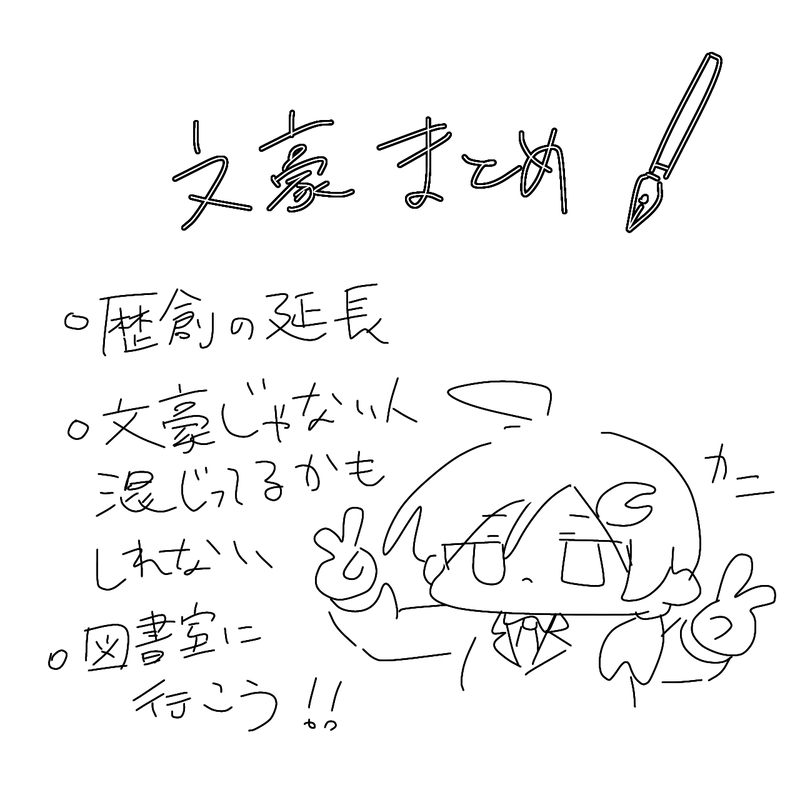 文豪まとめ
○歴創の延長
○文豪じゃない人
混じってるかも
しれない
○図書室に
行こう!!
カニ